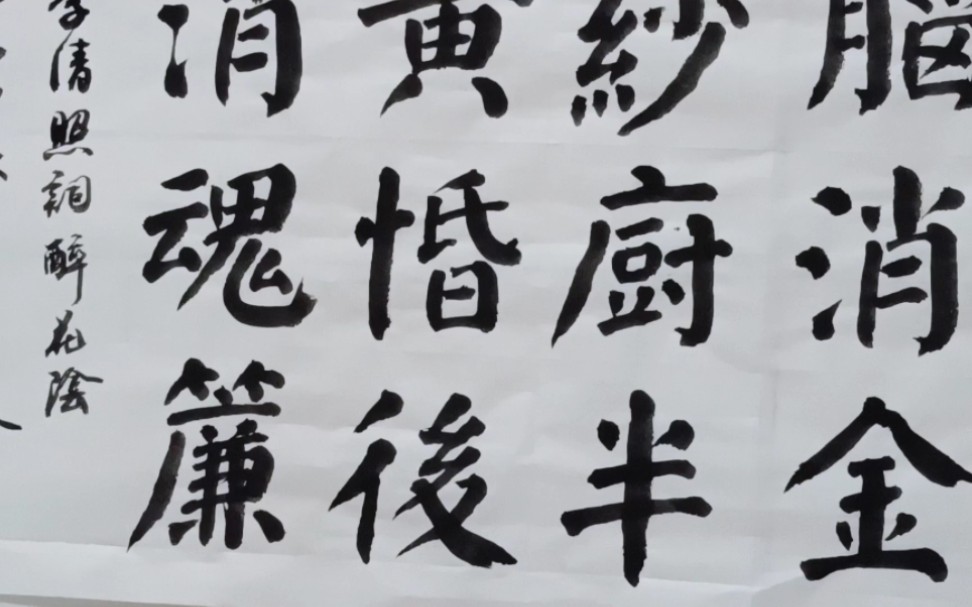 腦消金
紗厨半
黄惛後
消魂簾
李清照詞醉花陰